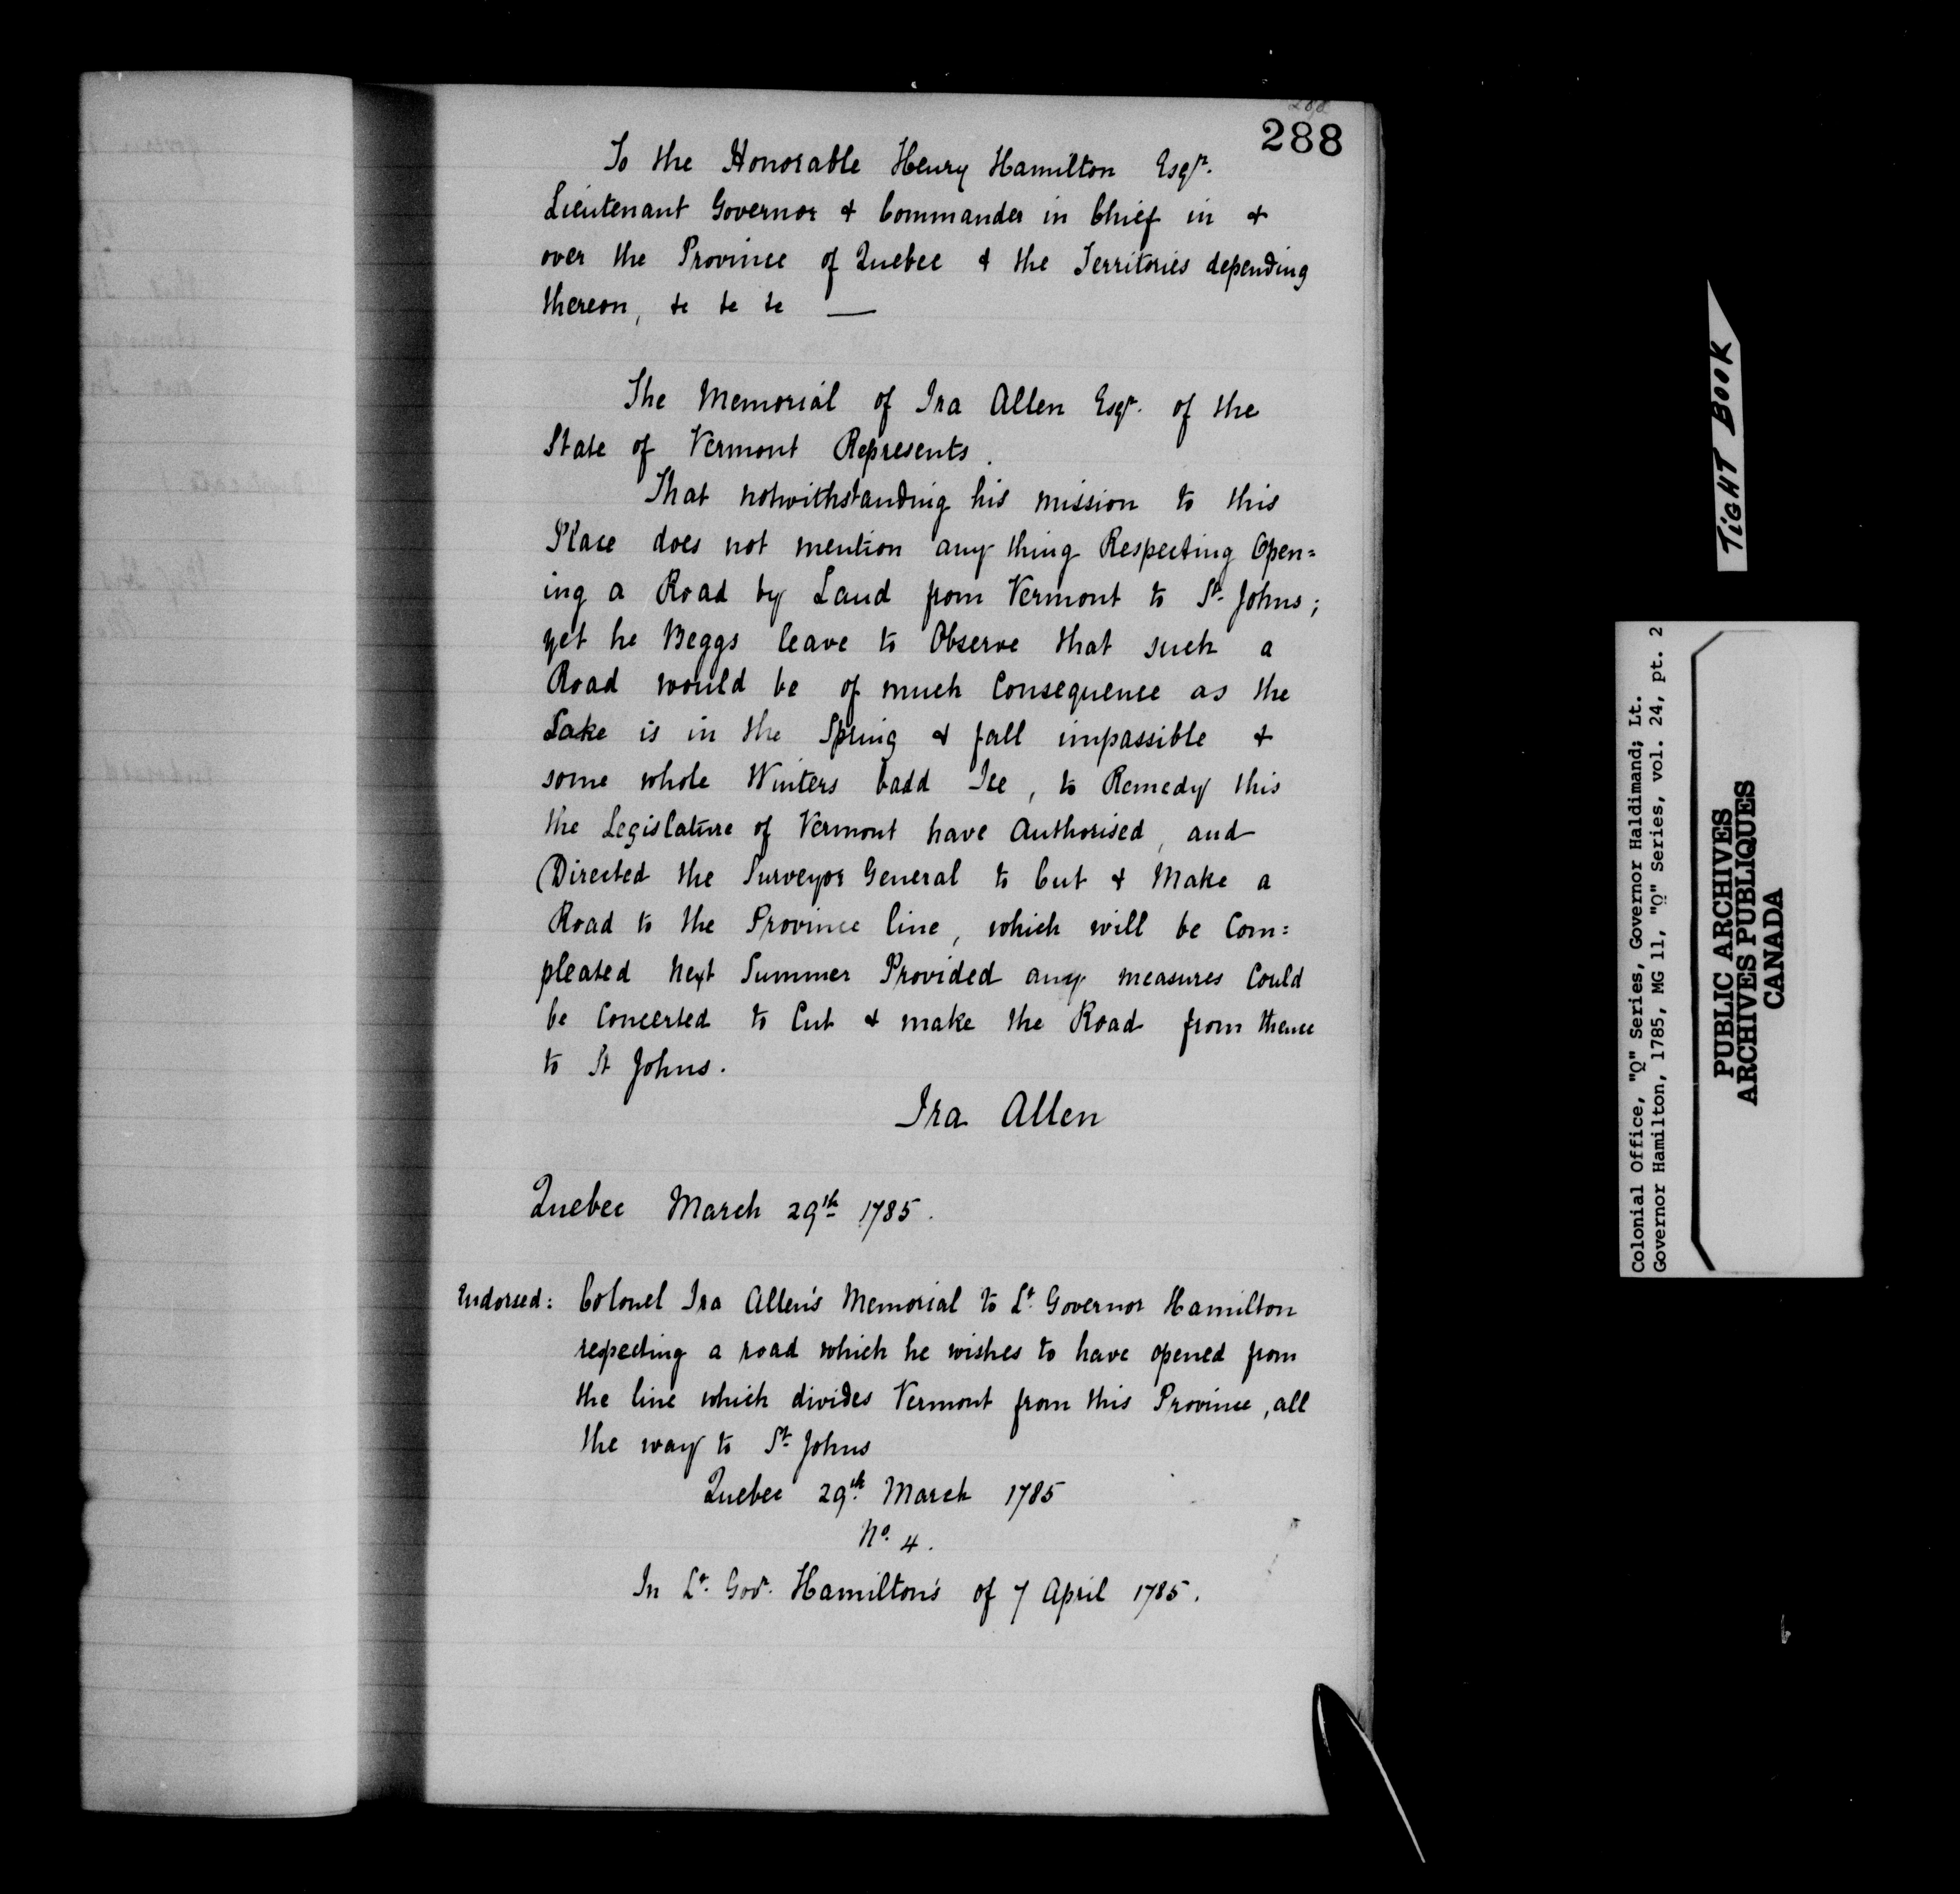 288
To the Honorable Henry Hamilton Esqr.
Lieutenant Governor & Commander in Chief in &
over the Province of Quebec & the Territories depending
thereon, &c &c &c —
The Memorial of Ira Allen Esqr. of the
State of Vermont Represents.
That notwithstanding his mission to this
Place does not mention any thing Respecting Open=
ing a Road by Land from Vermont to St. Johns;
yet he Beggs leave to Observe that such a
Road would be of much Consequence as the
Lake is in the Spring & fall impassible &
some whole Winters badd Ice, to Remedy this
the Legislature of Vermont have Authorised, and
Directed the Surveyor General to Cut & Make a
Road to the Province line, which will be Com=
pleated Next Summer Provided any measures Could
be Concerted to Cut & make the Road from thence
to St Johns.
Ira Allen
Quebec March 29th 1785.
Endorsed: Colonel Ira Allen's Memorial to Lt. Governor Hamilton
respecting a road which he wishes to have opened from
the line which divides Vermont from this Province, all
the way to St. Johns
Quebec 29th. March 1785
No. 4.
In Lt. Govr. Hamilton's of 7 April 1785.
TIGHT BOOK
Colonial Office, "Q" Series, Governor Haldimand; Lt.
Governor Hamilton, 1785, MG 11, "Q" Series, vol. 24, pt. 2
PUBLIC ARCHIVES
ARCHIVES PUBLIQUES
CANADA